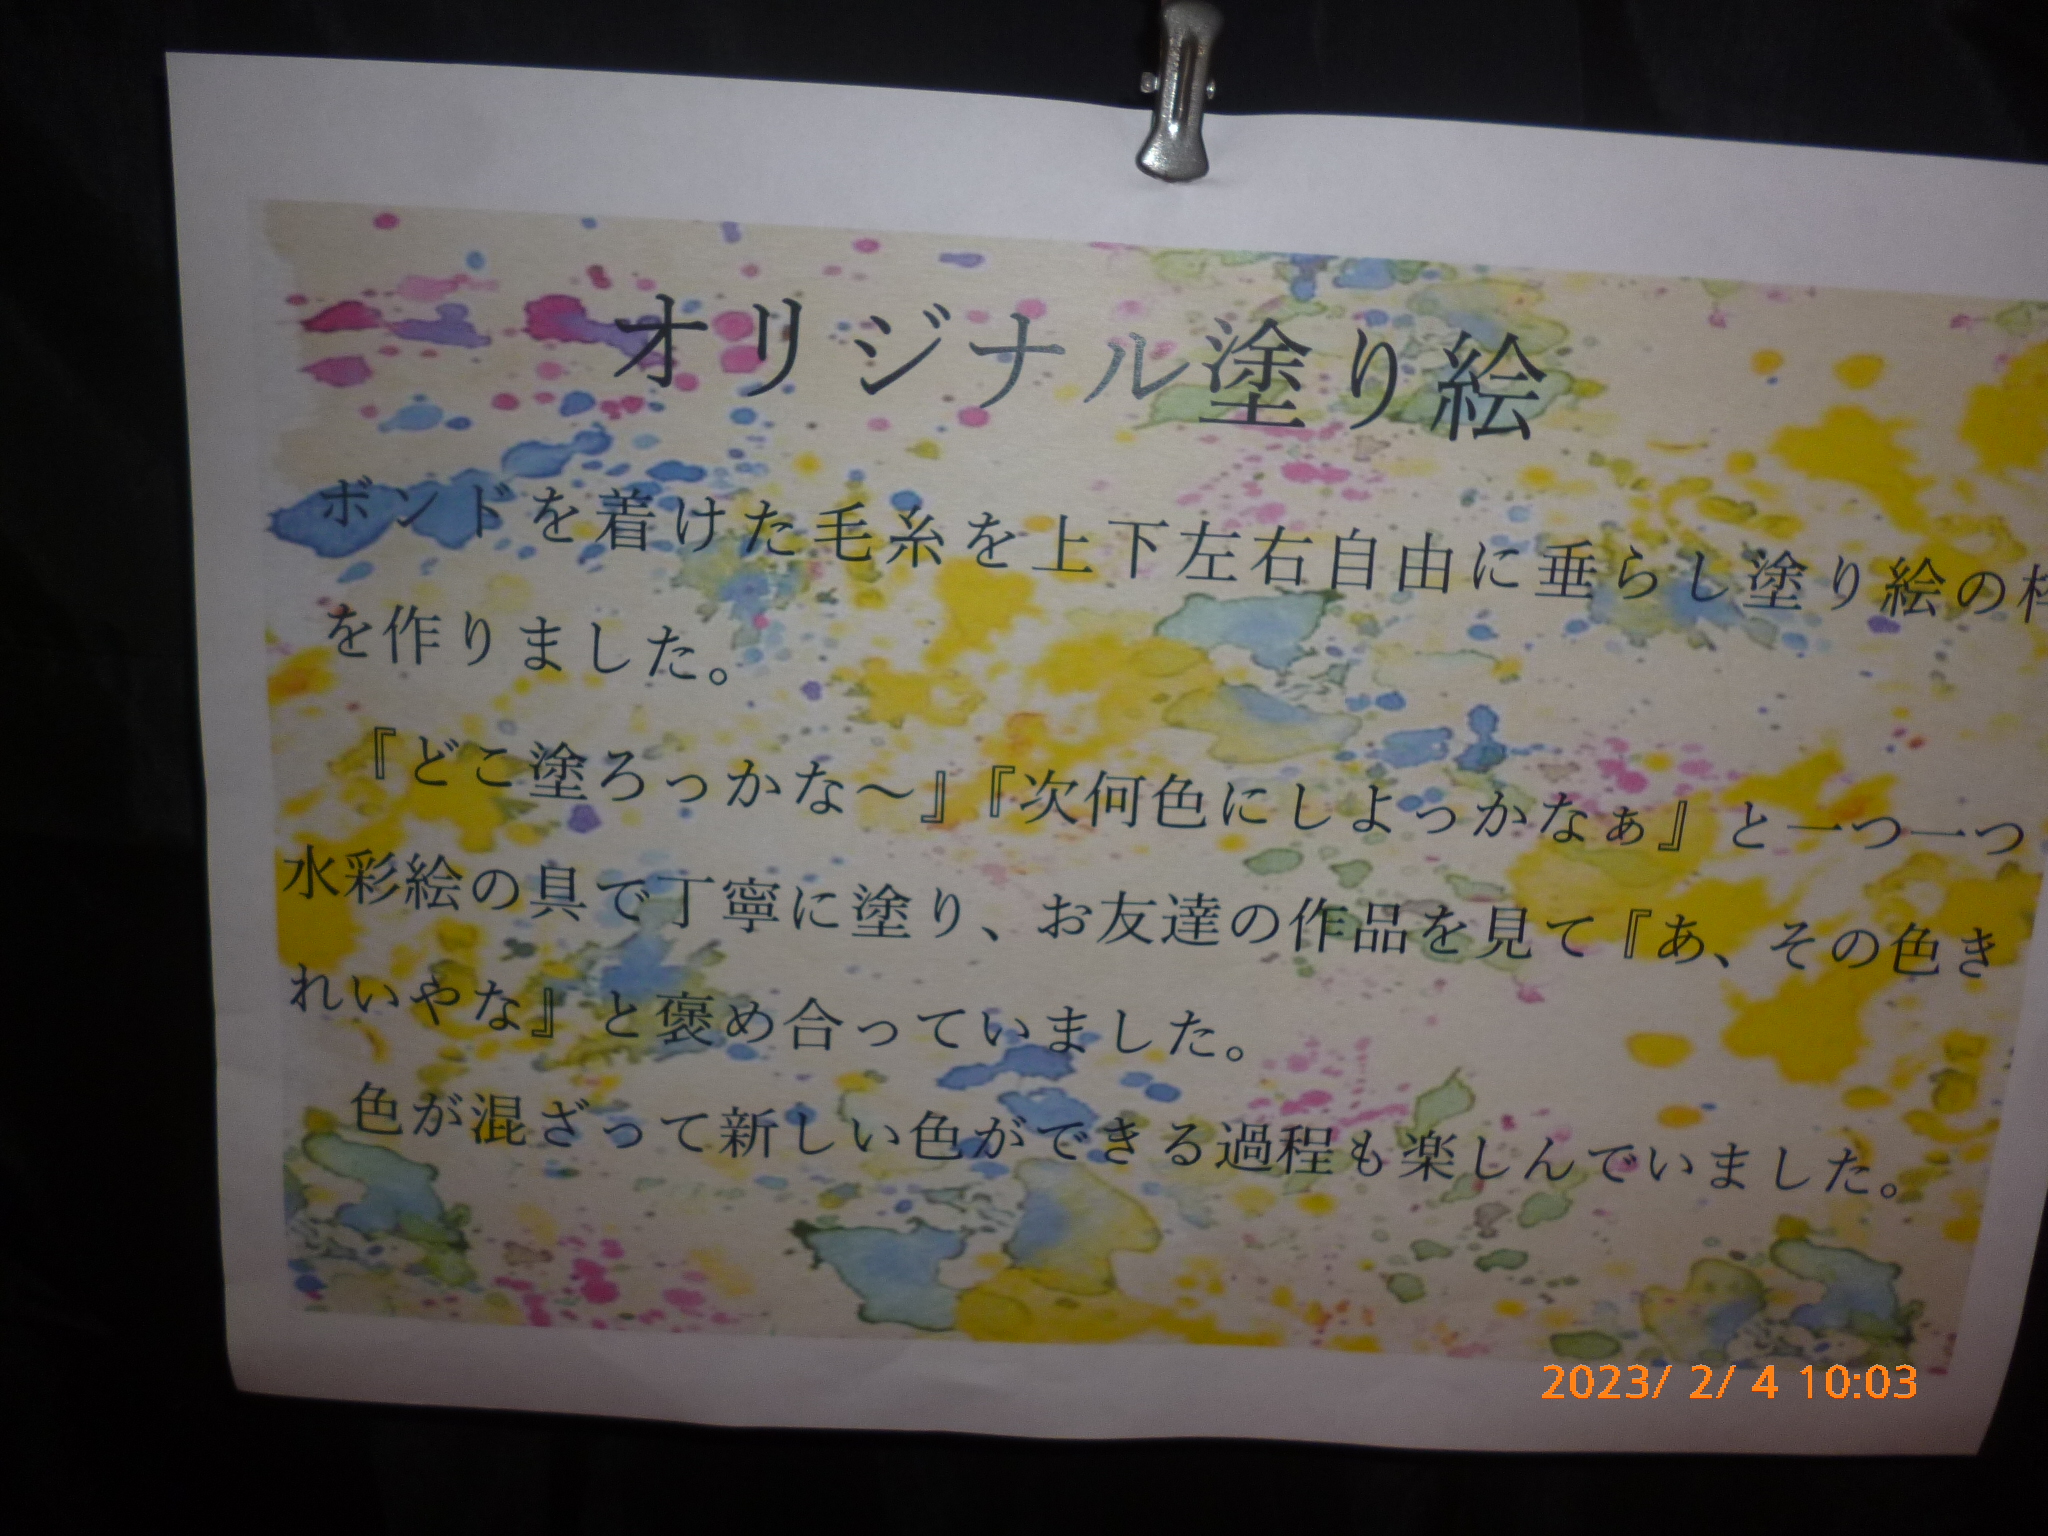 オリジナル塗り絵
ボンドを着けた毛糸を上下左右自由に垂らし塗り絵の枠
を作りました。
『どこ塗ろっかな～』『次何色にしよっかなぁ』と一つ一つ
水彩絵の具で丁寧に塗り、お友達の作品を見て『あ、その色き
れいやな』と褒め合っていました。
色が混ざって新しい色ができる過程も楽しんでいました。
2023/ 2/ 4 10:03